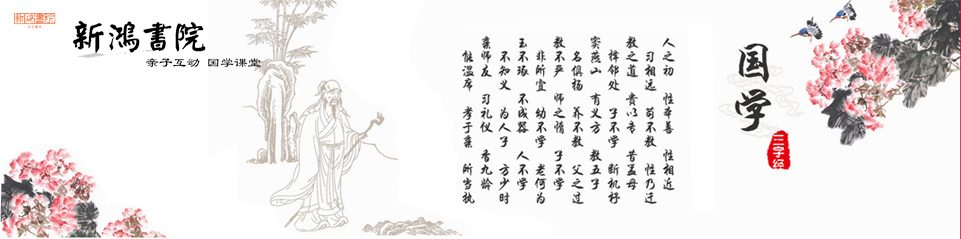 新鸿書院
新鸿書院
亲子互动 国学课堂
国学
三字经
人之初 性本善 性相近
习相远 苟不教 性乃迁
教之道 贵以专 昔孟母
择邻处 子不学 断机杼
窦燕山 有义方 教五子
名俱扬 养不教 父之过
教不严 师之惰 子不学
非所宜 幼不学 老何为
玉不琢 不成器 人不学
不知义 为人子 方少时
亲师友 习礼仪 香九龄
能温席 孝于亲 所当执